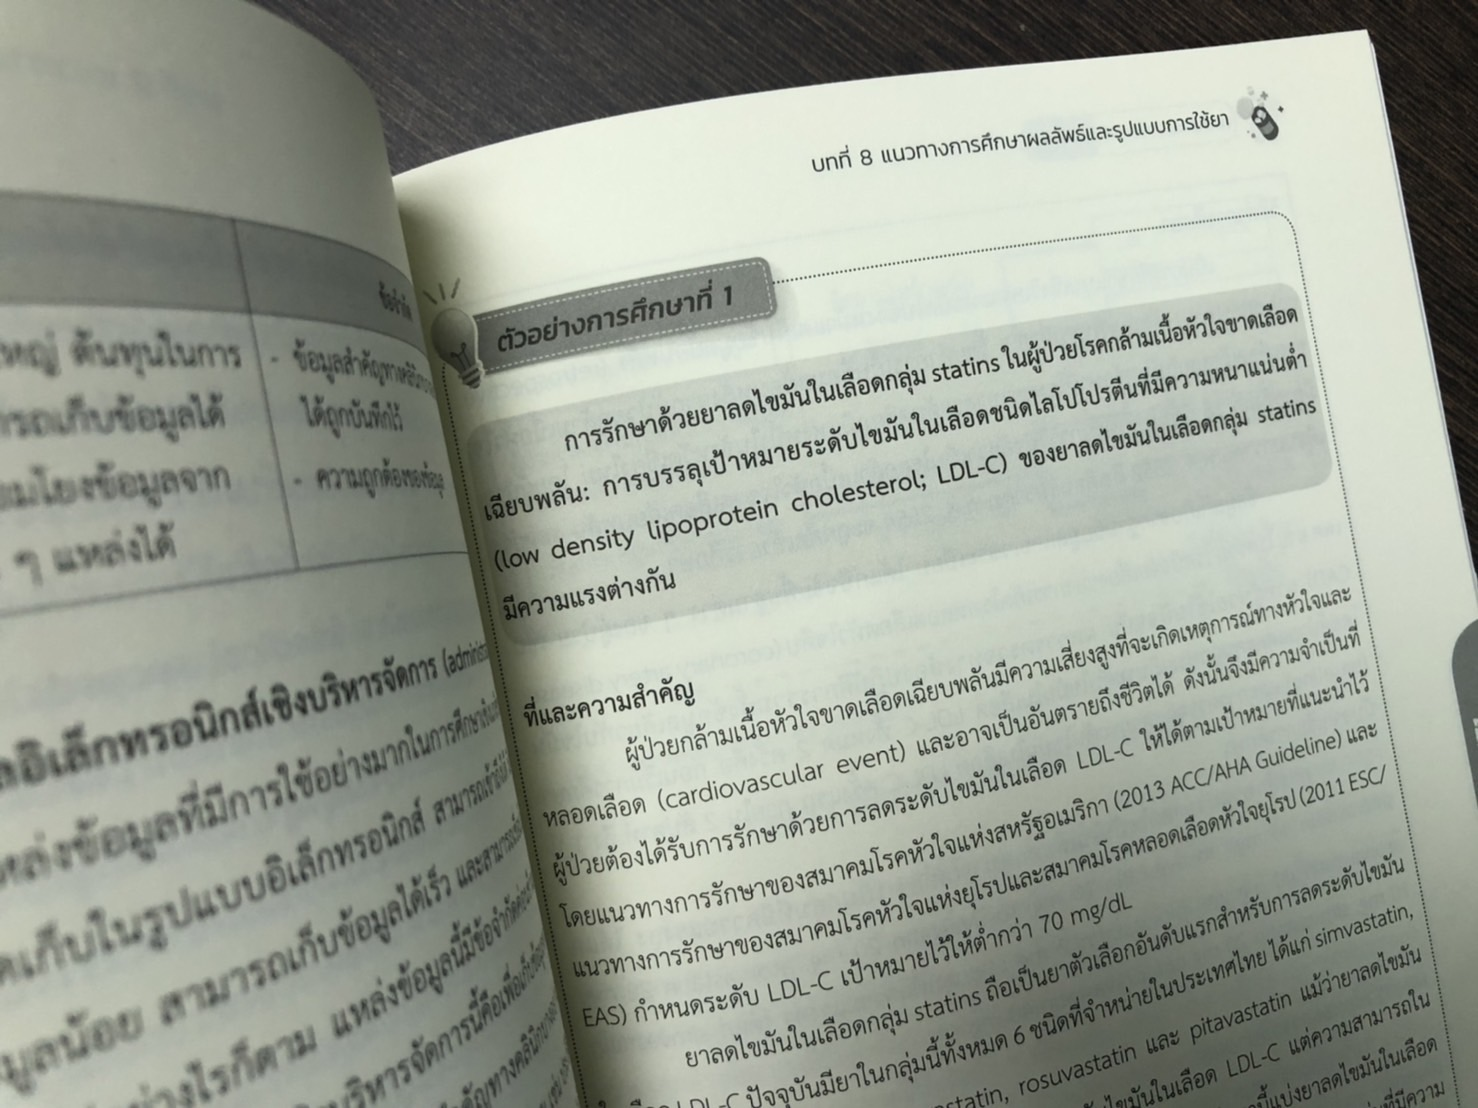 ข้อจำกัด
หญ่ ต้นทุนในการ
ารถเก็บข้อมูลได้
มโยงข้อมูลจาก
ๆ แหล่งได้
- ข้อมูลสำคัญทางคลินิก
ได้ถูกบันทึกไว้
- ความถูกต้องของข้อมูล
ลอิเล็กทรอนิกส์เชิงบริหารจัดการ (adminis
หล่งข้อมูลที่มีการใช้อย่างมากในการศึกษา
ดเก็บในรูปแบบอิเล็กทรอนิกส์ สามารถเข้าถึงได้
มูลน้อย สามารถเก็บข้อมูลได้เร็ว และสามารถ
ย่างไรก็ตาม แหล่งข้อมูลนี้มีข้อจำกัด
บริหารจัดการนี้คือเพื่อเก็บข้อมูล
บทที่ 8 แนวทางการศึกษาผลลัพธ์และรูปแบบการใช้ยา
ตัวอย่างการศึกษาที่ 1
การรักษาด้วยยาลดไขมันในเลือดกลุ่ม statins ในผู้ป่วยโรคกล้ามเนื้อหัวใจขาดเลือด
เฉียบพลัน: การบรรลุเป้าหมายระดับไขมันในเลือดชนิดไลโปโปรตีนที่มีความหนาแน่นต่ำ
(low density lipoprotein cholesterol; LDL-C) ของยาลดไขมันในเลือดกลุ่ม statins
มีความแรงต่างกัน
ที่และความสำคัญ
ผู้ป่วยกล้ามเนื้อหัวใจขาดเลือดเฉียบพลันมีความเสี่ยงสูงที่จะเกิดเหตุการณ์ทางหัวใจและ
หลอดเลือด (cardiovascular event) และอาจเป็นอันตรายถึงชีวิตได้ ดังนั้นจึงมีความจำเป็นที่
ผู้ป่วยต้องได้รับการรักษาด้วยการลดระดับไขมันในเลือด LDL-C ให้ได้ตามเป้าหมายที่แนะนำไว้
โดยแนวทางการรักษาของสมาคมโรคหัวใจแห่งสหรัฐอเมริกา (2013 ACC/AHA Guideline) และ
แนวทางการรักษาของสมาคมโรคหัวใจแห่งยุโรปและสมาคมโรคหลอดเลือดหัวใจยุโรป (2011 ESC/
EAS) กำหนดระดับ LDL-C เป้าหมายไว้ให้ต่ำกว่า 70 mg/dL
ยาลดไขมันในเลือดกลุ่ม statins ถือเป็นยาตัวเลือกอันดับแรกสำหรับการลดระดับไขมัน
LDL-C ปัจจุบันมียาในกลุ่มนี้ทั้งหมด 6 ชนิดที่จำหน่ายในประเทศไทย ได้แก่ simvastatin,
statin, rosuvastatin และ pitavastatin แม้ว่ายาลดไขมัน
ไขมันในเลือด LDL-C แต่ความสามารถใน
นี้แบ่งยาลดไขมันในเลือด
ที่มีความ